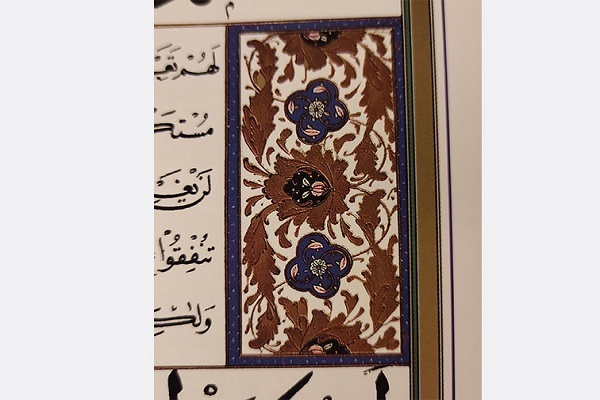 لَهُمْ تَعَـ
مُسْتَكـ
لَنْ يَغْـ
تُنْفِقُوا
وَلٰكِـ